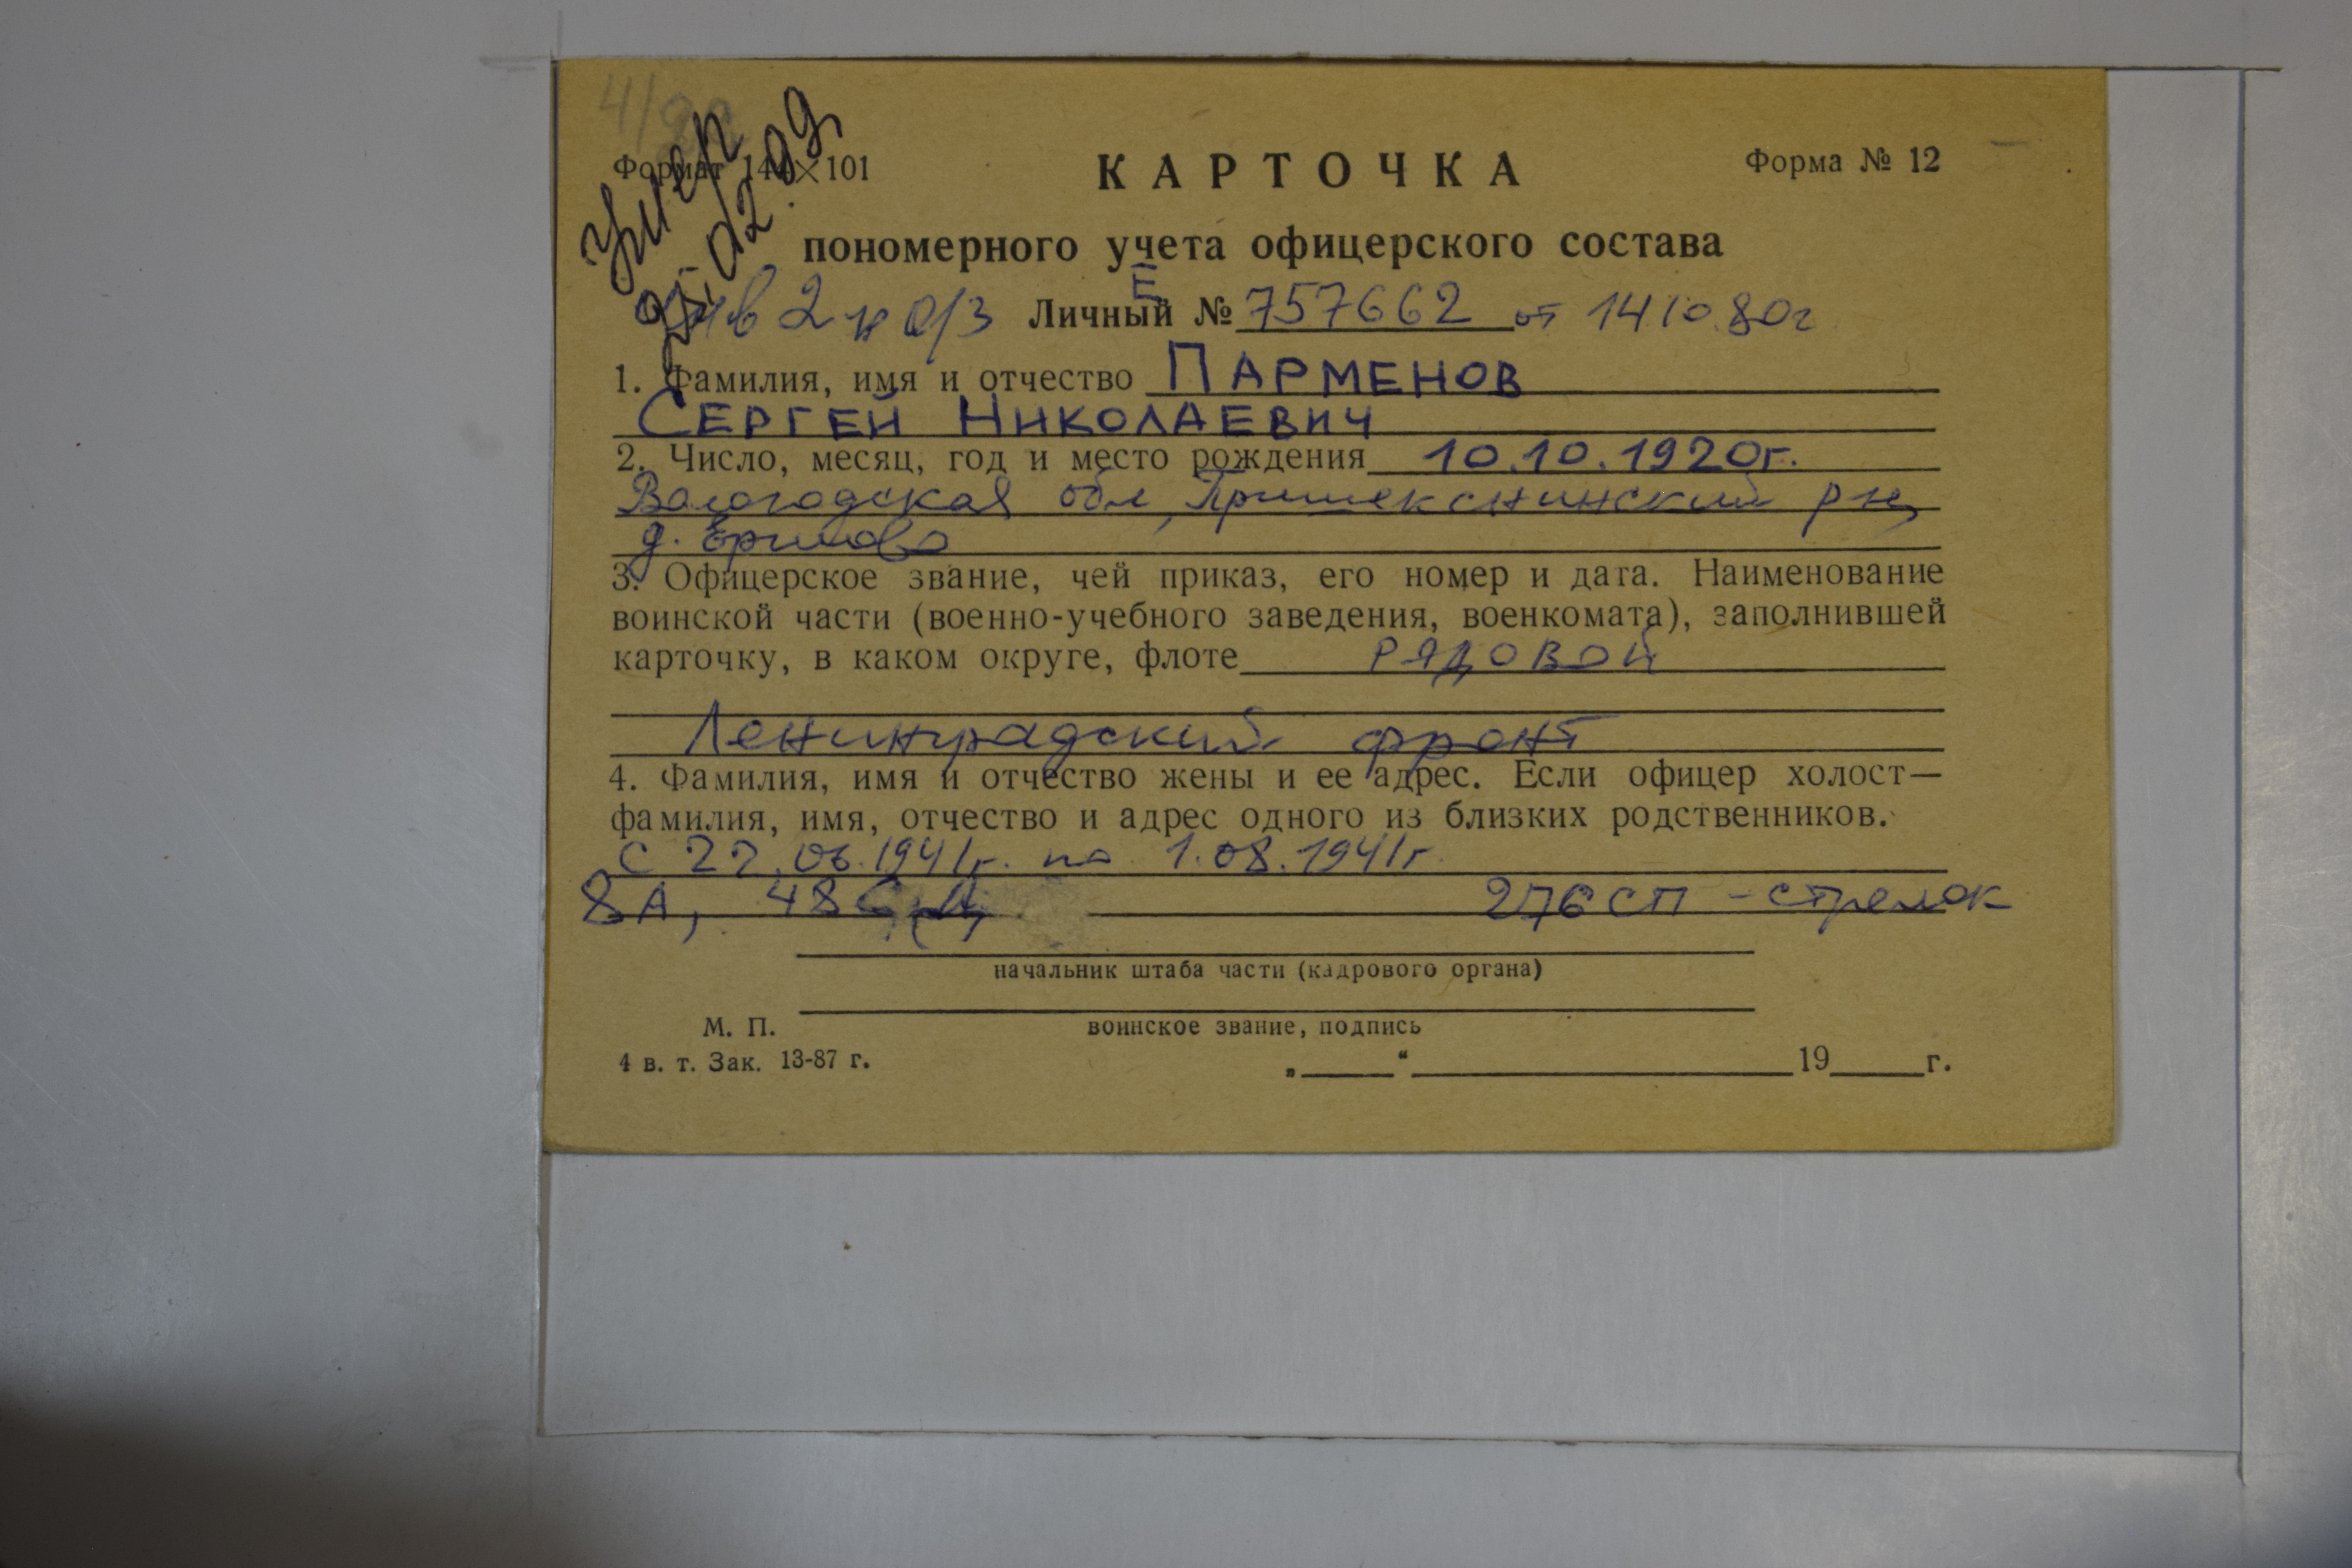 Умер
Формат 144×101
КАРТОЧКА
Форма № 12
пономерного учета офицерского состава
Ив 2 н 0/3 Личный № Е 757662 от 14.10.80г
1. Фамилия, имя и отчество ПАРМЕНОВ
СЕРГЕЙ НИКОЛАЕВИЧ
2. Число, месяц, год и место рождения 10.10.1920г.
Вологодская обл, Пришекснинский р-н,
д. Ершово
3. Офицерское звание, чей приказ, его номер и дата. Наименование
воинской части (военно-учебного заведения, военкомата), заполнившей
карточку, в каком округе, флоте РЯДОВОЙ
Ленинградский фронт
4. Фамилия, имя и отчество жены и ее адрес. Если офицер холост—
фамилия, имя, отчество и адрес одного из близких родственников.
С 22.06.1941г. по 1.08.1941г.
8А, 48 СД, 276 СП - стрелок
начальник штаба части (кадрового органа)
М. П.
воинское звание, подпись
4 в. т. Зак. 13-87 г.
„ “ 19 г.